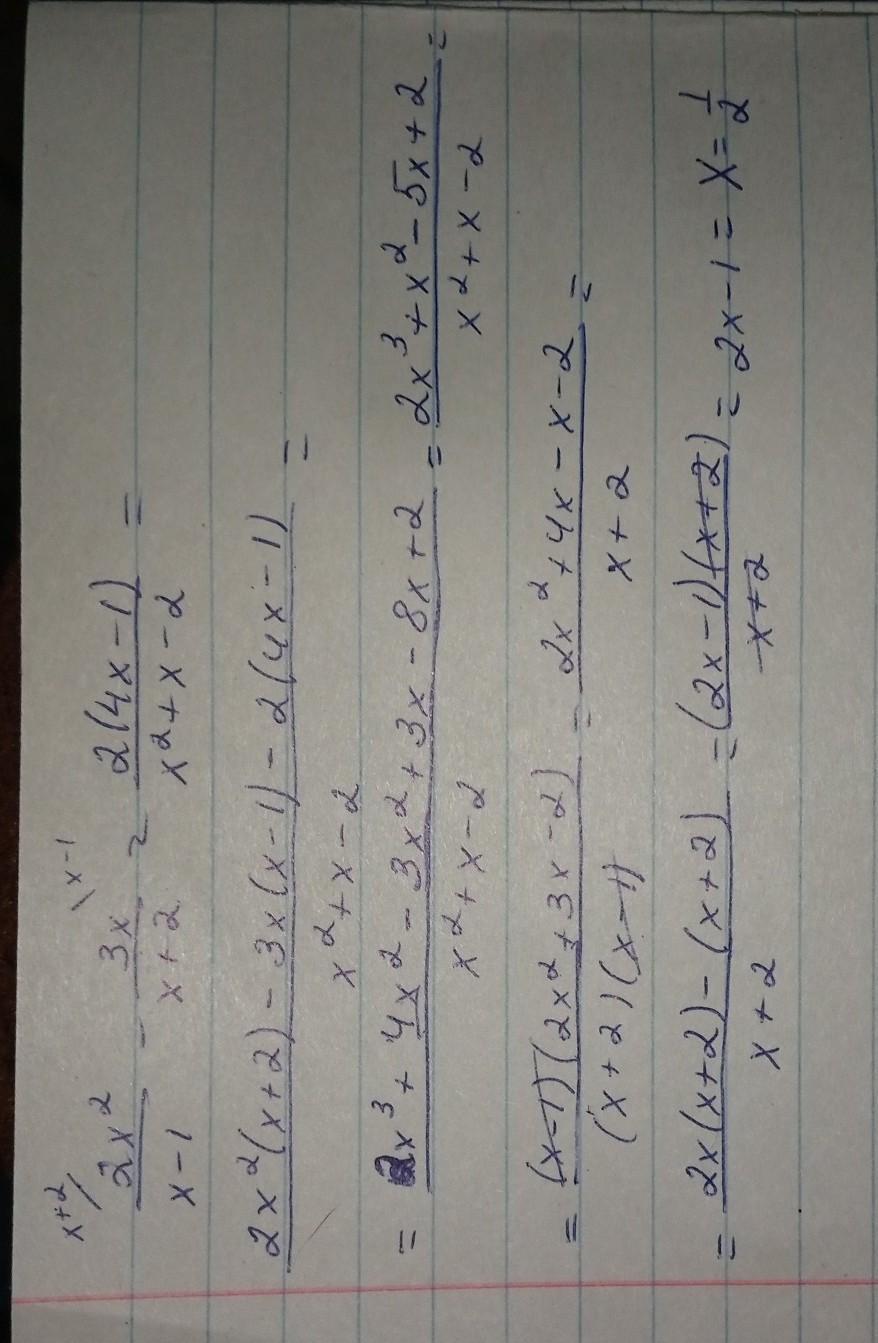 x+2/ \x-1
2x²/(x-1) - 3x/(x+2) = 2(4x-1)/(x²+x-2) =
(2x²(x+2) - 3x(x-1) - 2(4x-1))/(x²+x-2) =
= (2x³ + 4x² - 3x² + 3x - 8x + 2)/(x²+x-2) = (2x³ + x² - 5x + 2)/(x²+x-2) =
= ((x-1)(2x² + 3x - 2))/((x+2)(x-1)) = (2x² + 4x - x - 2)/(x+2) =
= (2x(x+2) - (x+2))/(x+2) = ((2x-1)(x+2))/(x+2) = 2x-1 = x = 1/2